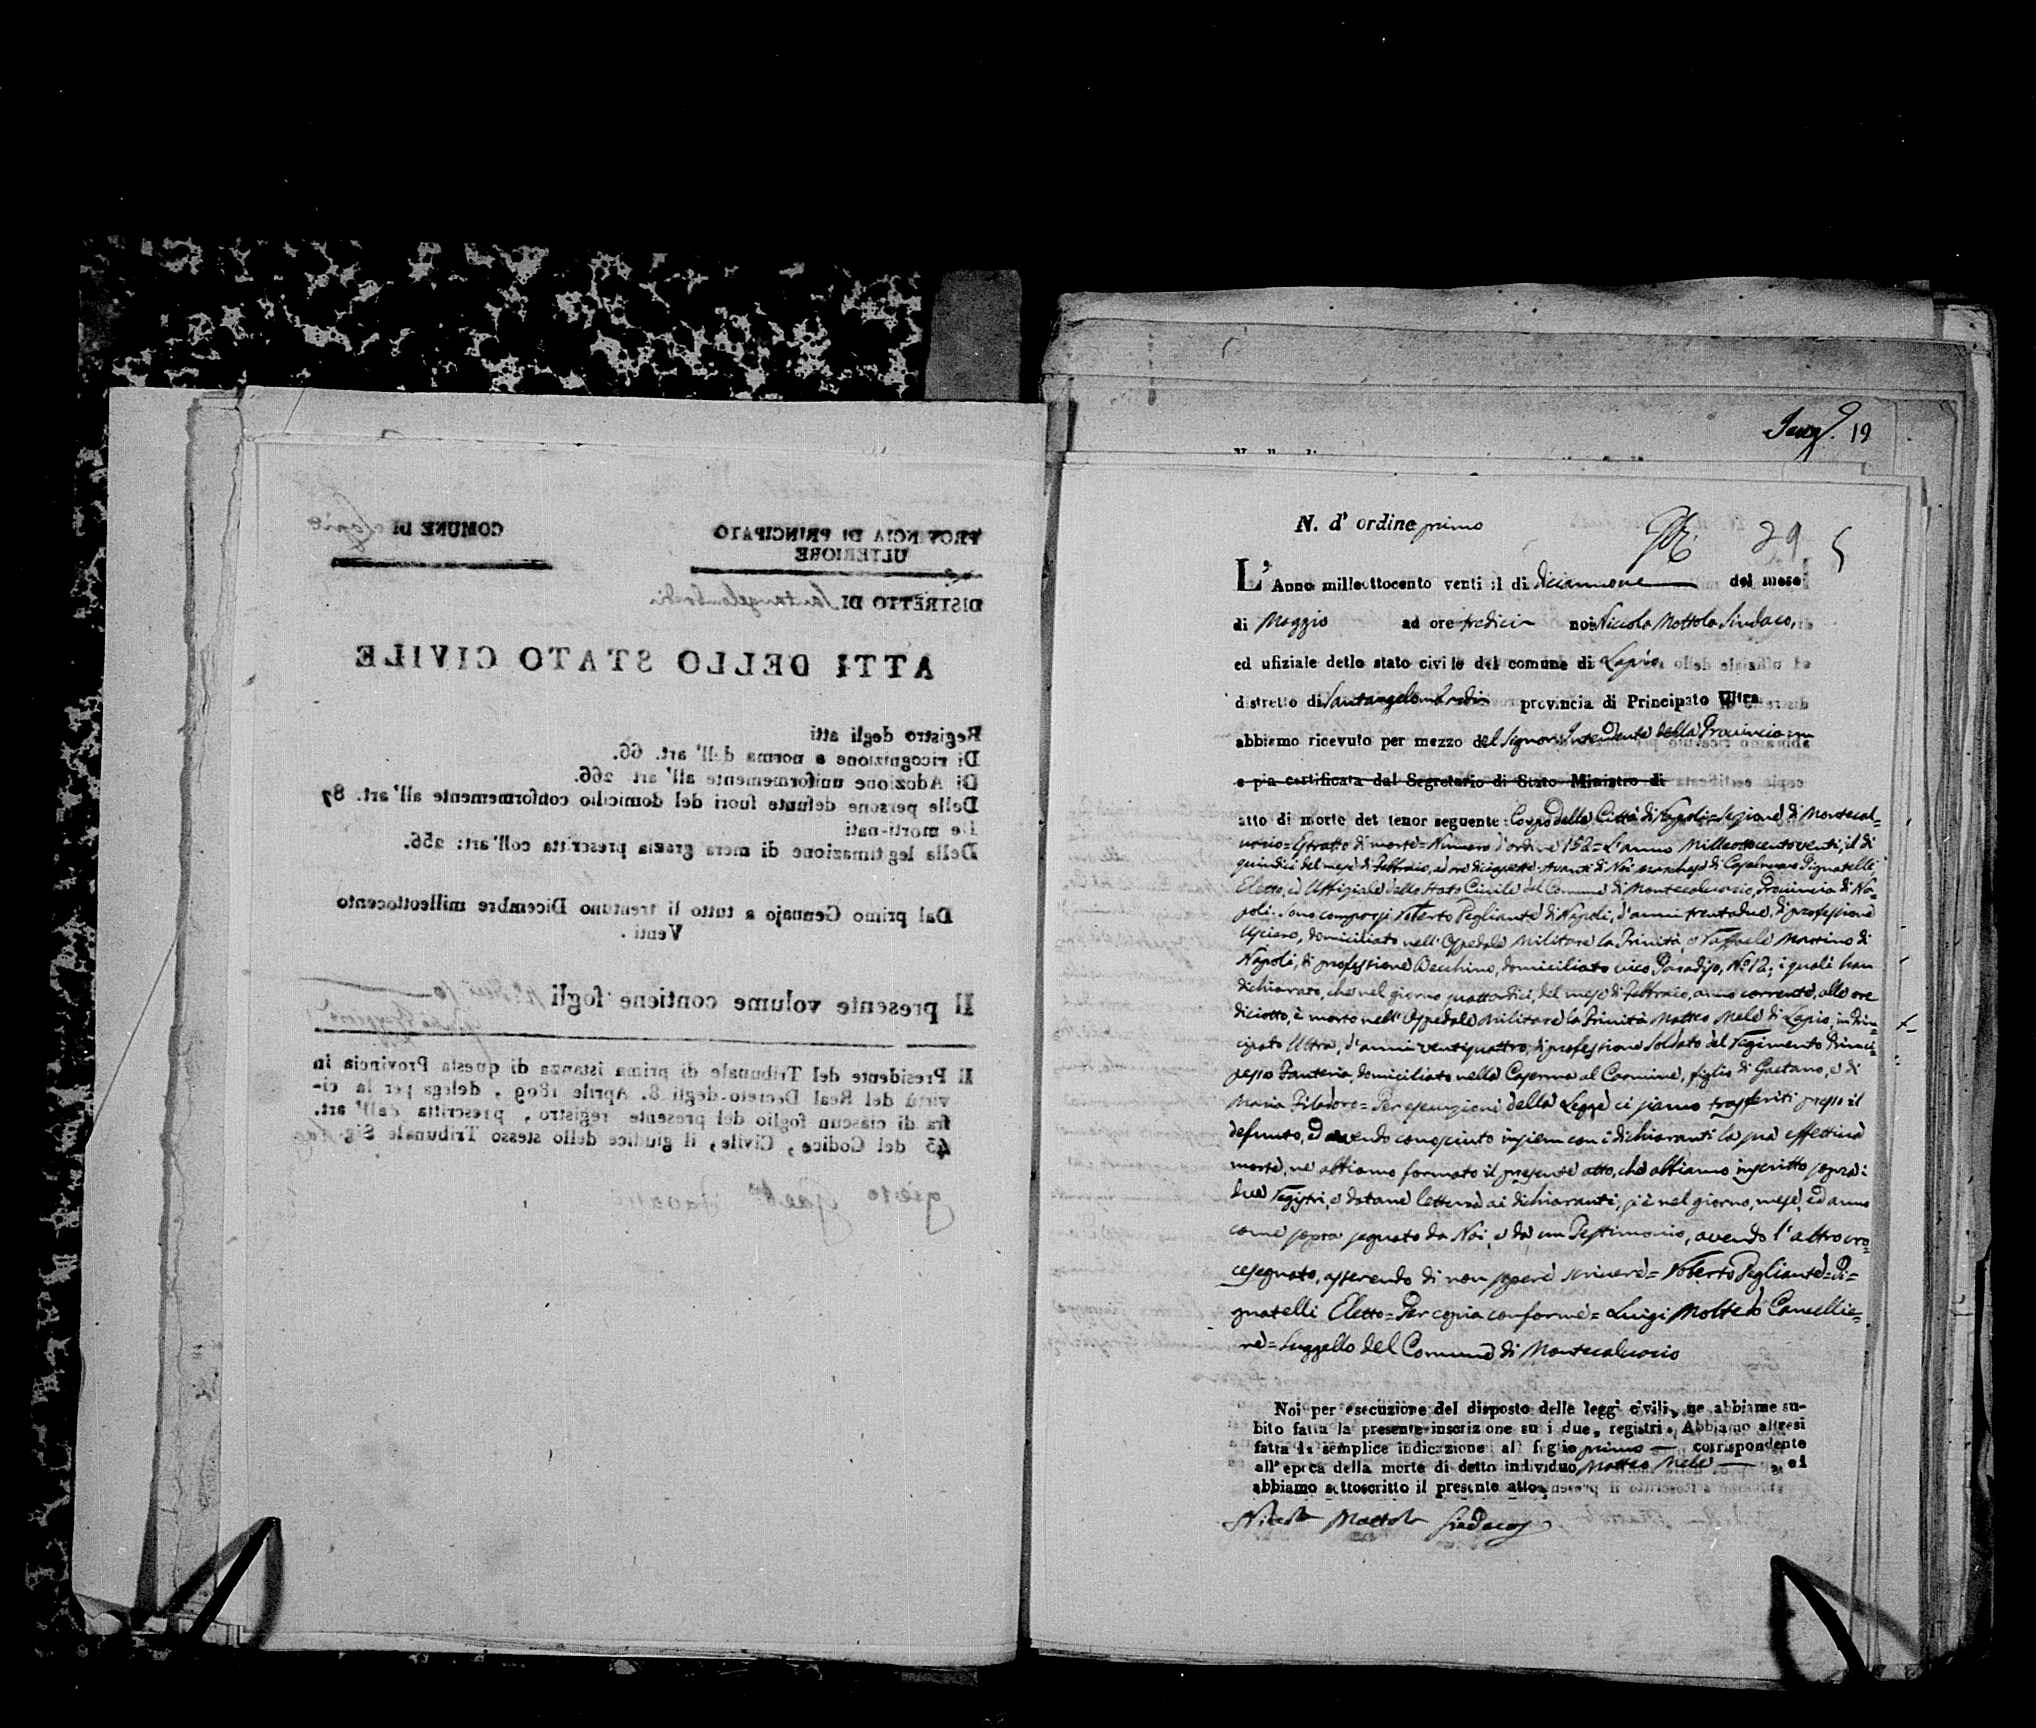 COMUNE DI Lapio
PROVINCIA DI PRINCIPATO
ULTERIORE
DISTRETTO DI Santangelombardi
ATTI DELLO STATO CIVILE
Registro degli atti
Di ricognizione a norma dell'art. 66.
Di Adozione uniformemente all'art 266.
Delle persone defunte fuori del domicilio conformemente all'art. 87
De morti-nati
Della legittimazione di mera grazia prescritta coll'art: 256.
Dal primo Gennajo a tutto li trentuno Dicembre milleottocento
Venti.
Il presente volume contiene fogli
Il Presidente del Tribunale di prima istanza di questa Provincia in
virtù del Real Decreto degli 8. Aprile 1809, delega per la ci-
fra di ciascun foglio del presente registro, prescritta dall'art.
43 del Codice, Civile, il giudice dello stesso Tribunale Sig.
19
N. d'ordine primo
29 5
L'Anno milleottocento venti il di diciannove del mese
di Maggio ad ore tredici noi Niccola Mottola Sindaco,
ed ufiziale dello stato civile del comune di Lapio
distretto di Santangelombardi provincia di Principato Ultra
abbiamo ricevuto per mezzo del Signor Intendente della Provincia un
copia certificata dal Segretario di Stato Ministro di
atto di morte del tenor seguente: Corpo della Città di Napoli = Sezione di Montecal-
vario = Estratto di morte = Numero d'ordine 152 = L'anno Milleottocentoventi, il di
quindici del mese di Febbraio, ad ore diciassette Avanti di Noi Marchese di Casalnuovo Pignatelli
Eletto, ed Uffiziale dello Stato Civile del Comune di Montecalvario, Provincia di Na-
poli. Sono comparsi Roberto Pegliante di Napoli, d'anni trentadue, di professione
Usciere, domiciliato nell'Ospedale Militare la Trinità, e Raffaele Martino di
Napoli, di professione Becchino, domiciliato vico Paradiso, N.o 12, i quali han
dichiarato, che nel giorno quattordici, del mese di Febbraio, anno corrente, alle ore
diciotto, è morto nell'Ospedale Militare la Trinità Matteo Mele di Lapio, in Prin-
cipato Ultra, d'anni ventiquattro, di professione Soldato del Regimento Princi-
pessa Fanteria, domiciliato nella Caserma al Carmine, figlio di Gaetano, e di
Maria = Per esecuzione della Legge ci siamo trasferiti presso il
defunto, ed avendo conosciuto insiem con i dichiaranti la sua effettiva
morte, ne abbiamo formato il presente atto, che abbiamo inscritto sopra i
due Registri, e datane lettura ai dichiaranti, si è nel giorno, mese, ed anno
come sopra segnato da Noi, e da un Testimonio, avendo l'altro cro-
cesegnato, asserendo di non sapere scrivere = Roberto Pegliante = Pi-
gnatelli Eletto = Per copia conforme = Luigi Moltedo Cancellie-
re = Suggello del Comune di Montecalvario
Noi per esecuzione del disposto delle leggi civili, ne abbiamo su-
bito fatta la presente inscrizione su i due registri. Abbiamo altresi
fatta la semplice indicazione al foglio primo corrispondente
all'epoca della morte di detto individuo Matteo Mele, ed
abbiamo sottoscritto il presente atto.
Nicola Mottola Sindaco